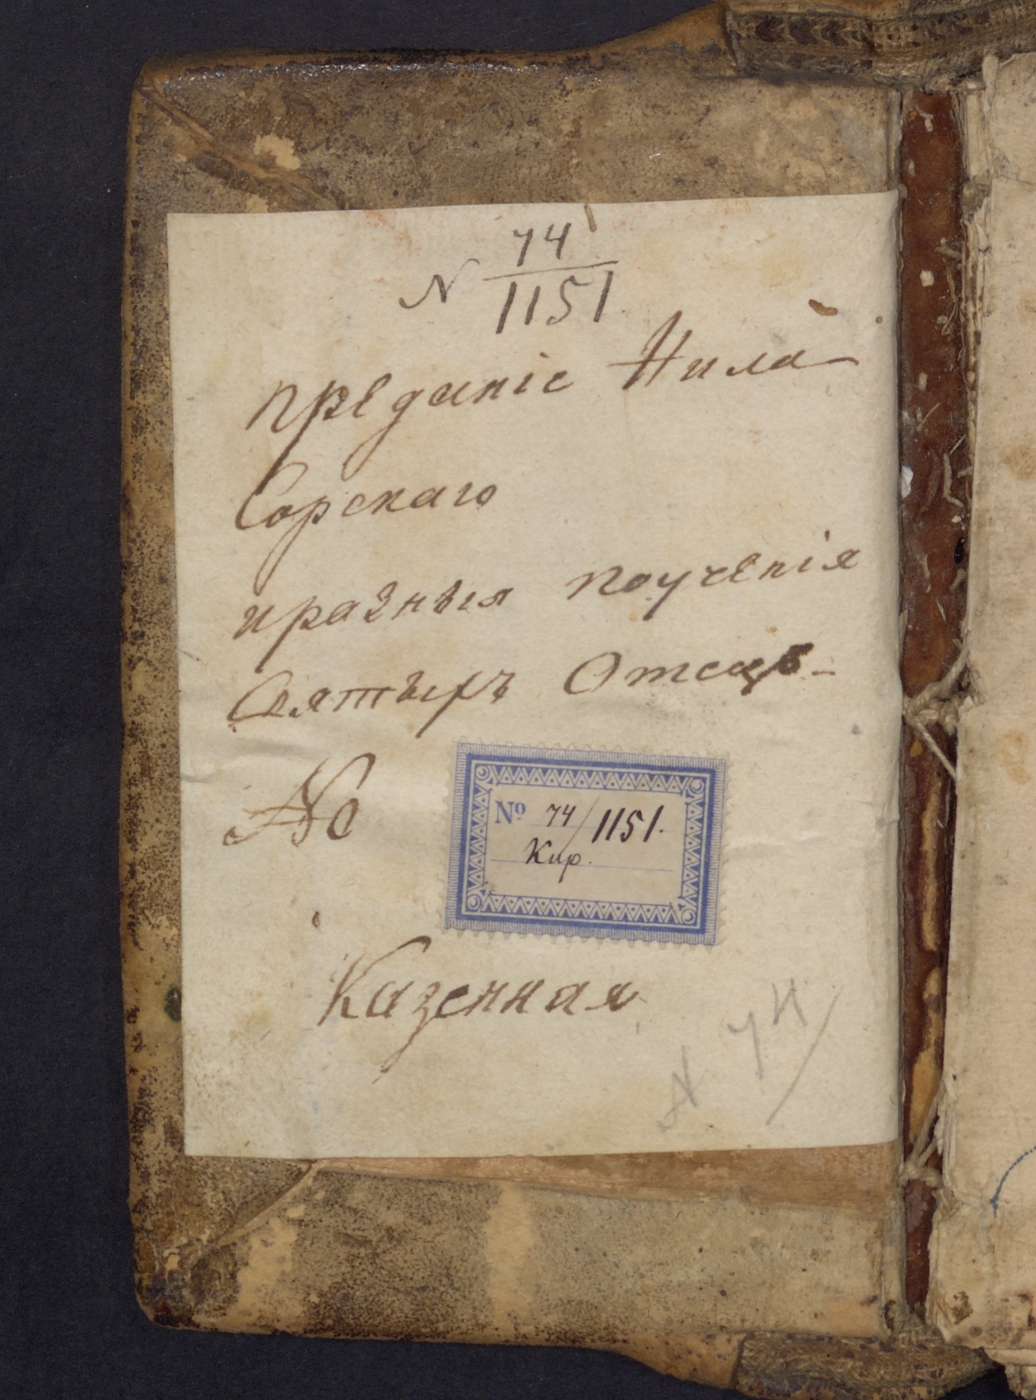 N 74
1151
преданіе Нила
Сорскаго
иразныя поучения
Святыхъ Отецъ
No
№ 74/1151.
Кир.
Казенная
N 74